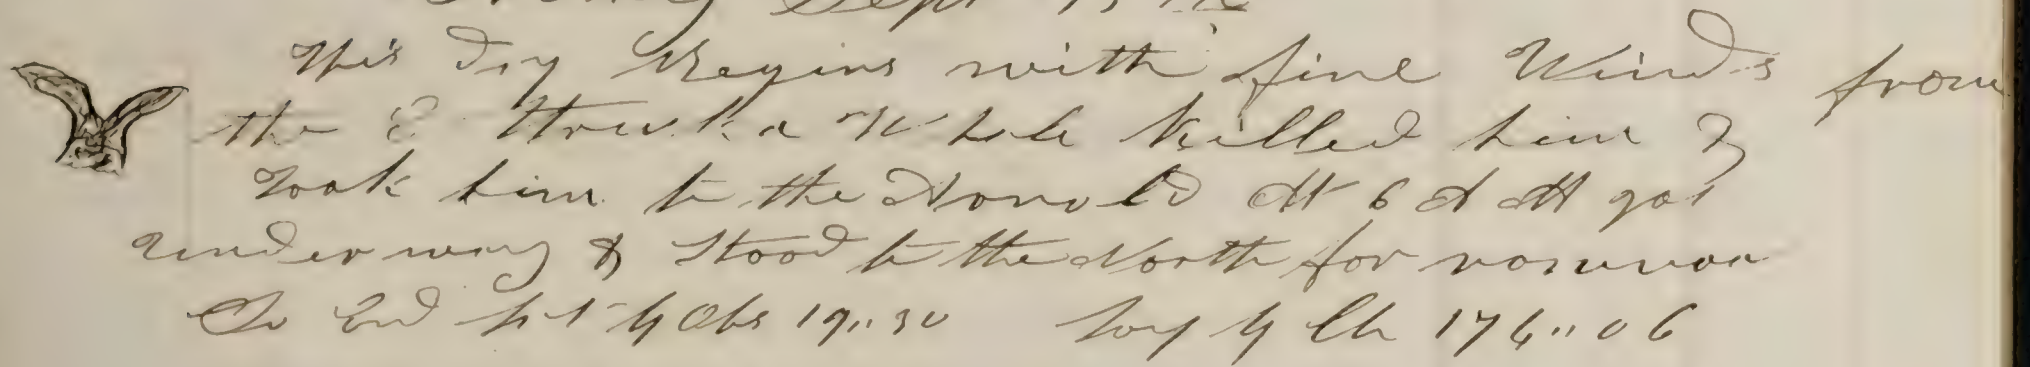 Sept 13th
This Day Begins with fine Winds from
the E Struck a Whale killed him &
Took him to the At 6 A M got
under way & Stood to the North for
So End Lat by Obs 19,,30 Long by Ch 176,,06